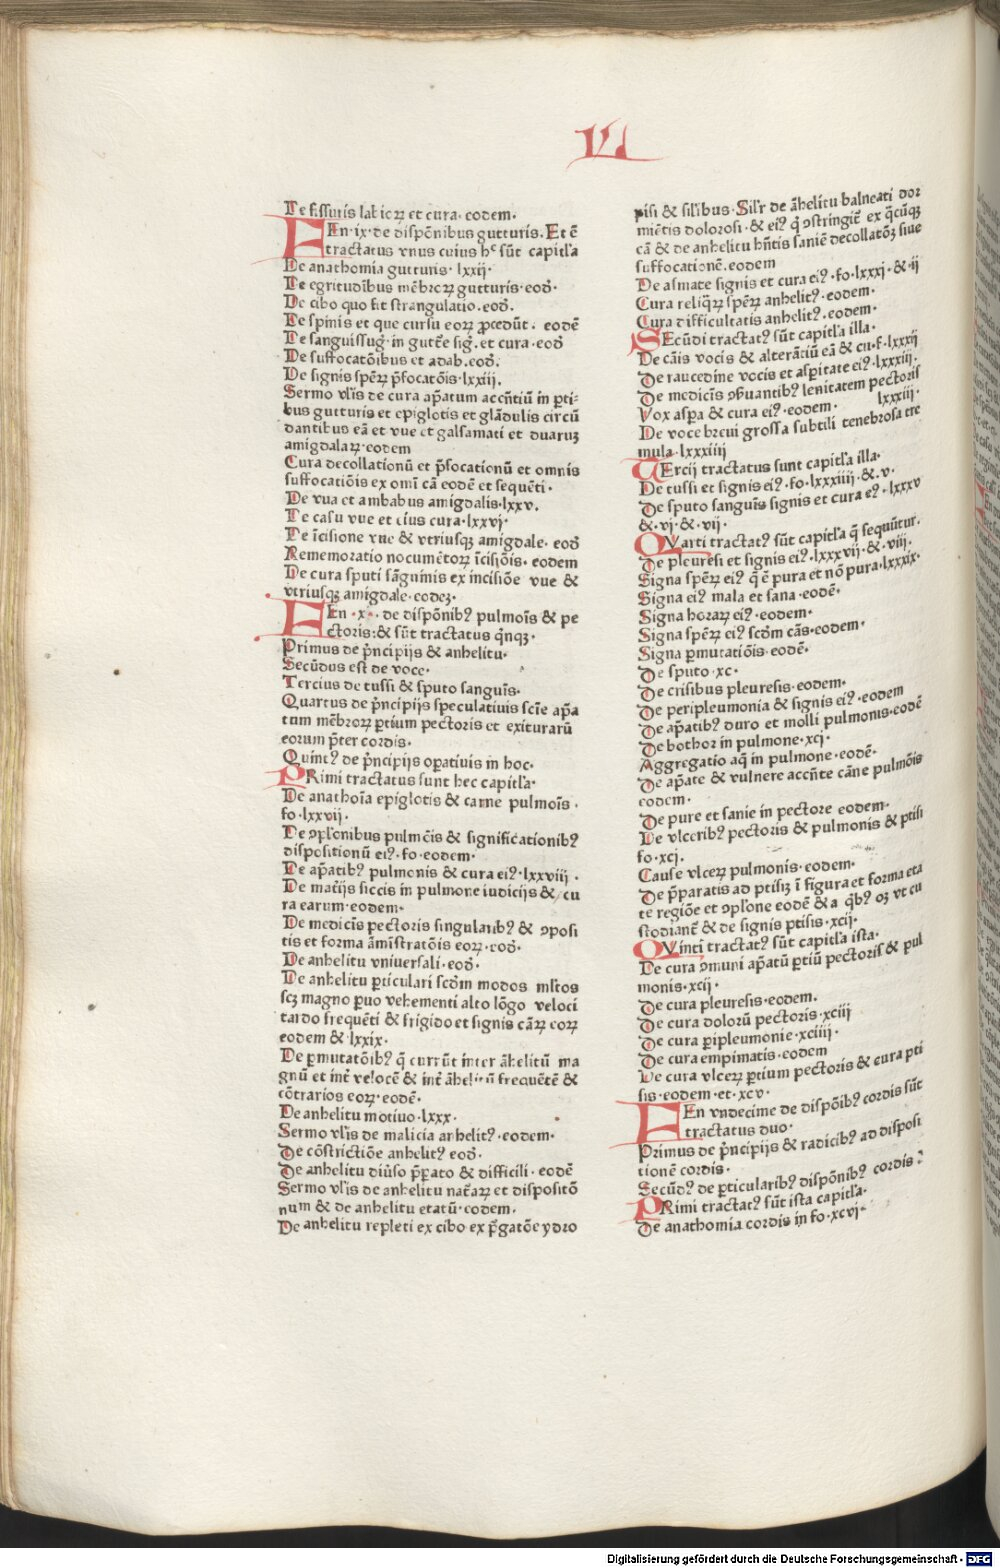 VI
De fissuris labioꝝ et cura. eodem.
FEn·ix·de dispõnibus gutturis. Et ẽ
tractatus vnus cuius hᶜ sũt capitl'a
De anathomia gutturis·lxxij·
De egritudibus mẽbroꝝ gutturis·eod̃·
De cibo quo fit strangulatio·eod̃.
De spinis et que cursu eoꝝ ꝓcedũt. eodẽ
De sanguissug̃·in gutt̃e sig̃·et cura·eod̃
De suffocatõibus et adab.eod̃.
De signis speꝝ p̃focatõis·lxxiij.
Sermo vl'is de cura ap̃atum accñtiũ in ꝑti-
bus gutturis et epiglotis et glãdulis circũ
dantibus eã et vue et galsamati et duarũ
amigdalaꝝ·eodem
Cura decollationũ et p̃focationũ et omnis
suffocatiõis ex om̃i cã eodẽ et sequẽti·
De vua et ambabus amigdalis·lxxv.
De casu vue et eius cura·lxxvj·
De ĩcisione vue & vtriusqꝫ amigdale. eod̃
Rememoratio nocumẽtoꝝ ĩcisiõis· eodem
De cura sputi sãguinis ex incisiõe vue &
vtriusqꝫ amigdale·eodeꝫ·
FEn·x·de dispõnibꝰ pulmoĩs & pe
ctoris:& sũt tractatus qͥnqꝫ·
Primus de pͥncipijs & anhelitu·
Secũdus est de voce·
Tercius de tussi & sputo sanguĩs·
Quartus de pͥncipijs speculatiuis scĩe ap̃a
tum mẽbroꝝ ꝑtium pectoris et exiturarũ
eorum p̃ter cordis·
Quintꝰ de pͥncipijs oꝑatiuis in hoc·
PRimi tractatus sunt hec capitl'a·
De anathoĩa epiglotis & carne pulmoĩs·
fo·lxxvij·
De ꝯpl'onibus pulmõis & significationibꝰ
dispositionũ eiꝰ·fo·eodem·
De ap̃atibꝰ pulmonis & cura eiꝰ·lxxviij·
De mat̃ijs siccis in pulmone iudicijs &/cu
ra earum·eodem·
De medicĩs pectoris singularibꝰ & ꝯposi
tis et forma ãmistratõis eoꝝ·eod̃·
De anhelitu vniuersali·eod̃·
De anhelitu ꝑticulari scd̃m modos ml'tos
scꝫ magno ꝑuo vehementi alto lõgo veloci
tardo frequẽti & frigido et signis cãꝝ eoꝝ
eodem & lxxix·
De ꝑmutatõibꝰ q̃ currũt inter ãhelitũ ma
gnũ et int̃ velocẽ & int̃ ãhelitũ frequẽtẽ &
cõtrarios eoꝝ·eodẽ·
De anhelitu motiuo·lxxx·
Sermo vl'is de malicia anhelitꝰ·eodem·
De cõstrictiõe anhelitꝰ eod̃·
De anhelitu diũso p̃ꝑato & difficili·eodẽ
Sermo vl'is de anhelitu nat̃aꝝ et dispositõ
num & de anhelitu etatũ·eodem·
De anhelitu repleti ex cibo ex p̃gatõe ydro
pisi & sil'ibus·Sil'r de ãhelitu balneati dor
miẽtis dolorosi·& eiꝰ q̃ ꝯstringit̃ ex q̃cũqꝫ
cã & de anhelitu hñtis saniẽ decollatõꝫ siue
suffocationẽ.eodem
De asmate signis et cura eiꝰ·fo·lxxxj·&·ij
Cura reliq̃ꝝ speꝝ anhelitꝰ·eodem·
Cura difficultatis anhelitꝰ·eodem·
SEcũdi tractatꝰ sũt capitl'a illa·
De cãis vocis & alterãtiũ eã & cũ·f·lxxxij
De raucedine vocis et asꝑitate eiꝰ·lxxxiij·
De medicĩs ꝯẽruantibꝰ lenitatem pectoris
Vox asꝑa & cura eiꝰ·eodem· lxxxiij·
De voce breui grossa subtili tenebrosa tre
mula·lxxxiiij
TErcij tractatus sunt capitl'a illa·
De tussi et signis eiꝰ·fo·lxxxiiij·&·v·
De sputo sanguĩs signis et cura eꝰ·lxxxv
&·vj·&·vij·
QVarti tractatꝰ sũt capitl'a q̃ sequũtur·
De pleuresi et signis eiꝰ·lxxxvij·&·viij·
Signa speꝝ eiꝰ q̃ ẽ pura et nõ pura·lxxxix·
Signa eiꝰ mala et sana·eodẽ·
Signa horaꝝ eiꝰ·eodem·
Signa speꝝ eiꝰ scd̃m cãs·eodem·
Signa ꝑmutatiõis·eodẽ·
De sputo·xc·
De crisibus pleuresis·eodem·
De peripleumonia & signis eiꝰ·eodem
De ap̃atibꝰ duro et molli pulmonis·eodẽ
De bothor in pulmone·xcj·
Aggregatio aq̃ in pulmone·eodẽ·
De ap̃ate & vulnere accñte cãne pulmõis
eodem·
De pure et sanie in pectore eodem·
De vlceribꝰ pectoris & pulmonis & ptisi
fo·xcj.
Cause vlceꝝ pulmonis·eodem·
De p̃paratis ad ptisiꝫ ĩ figura et forma eta
te regiõe et ꝯpl'one eodẽ & a qͥbꝰ oꝫ vt cu
stodiant̃ & de signis ptisis·xcij·
QVinti tractatꝰ sũt capitl'a ista·
De cura ꝯmuni ap̃atũ ꝑtiũ pectoris & pul
monis·xcij·
De cura pleuresis·eodem.
De cura dolorũ pectoris·xciij
De cura ꝑipleumonie·xciiij·
De cura empimatis·eodem
De cura vlceꝝ ꝑtium pectoris & cura pti
sis·eodem·et·xcv·
FEn vndecime de dispõibꝰ cordis sũt
tractatus duo·
Primus de pͥncipijs & radicibꝰ ad disposi
tionẽ cordis·
Secũdꝰ de ꝑticularibꝰ dispõnibꝰ cordis:
PRimi tractatꝰ sũt ista capitl'a·
De anathomia cordis in fo·xcvj·
Digitalisierung gefördert durch die Deutsche Forschungsgemeinschaft - DFG